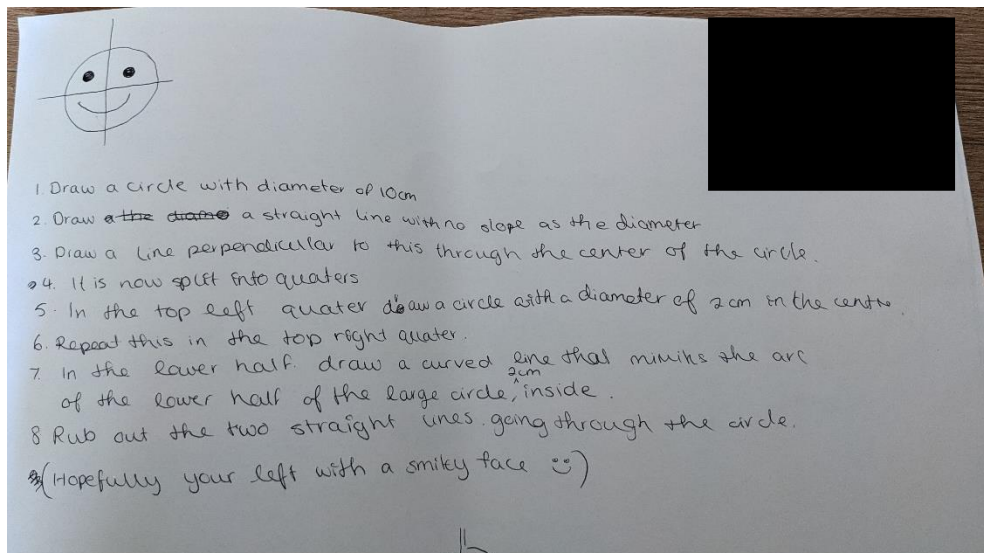 1. Draw a circle with diameter of 10cm
2. Draw a the diame a straight line with no slope as the diameter
3. Draw a line perpendicullar to this through the center of the circle.
4. It is now split into quaters
5. In the top left quater draw a circle with a diameter of 2cm in the centre.
6. Repeat this in the top right quater.
7. In the lower half. draw a curved line that mimiks the arc
of the lower half of the large circle, 2cm inside.
8 Rub out the two straight lines going through the circle.
(Hopefully your left with a smiley face ☺)